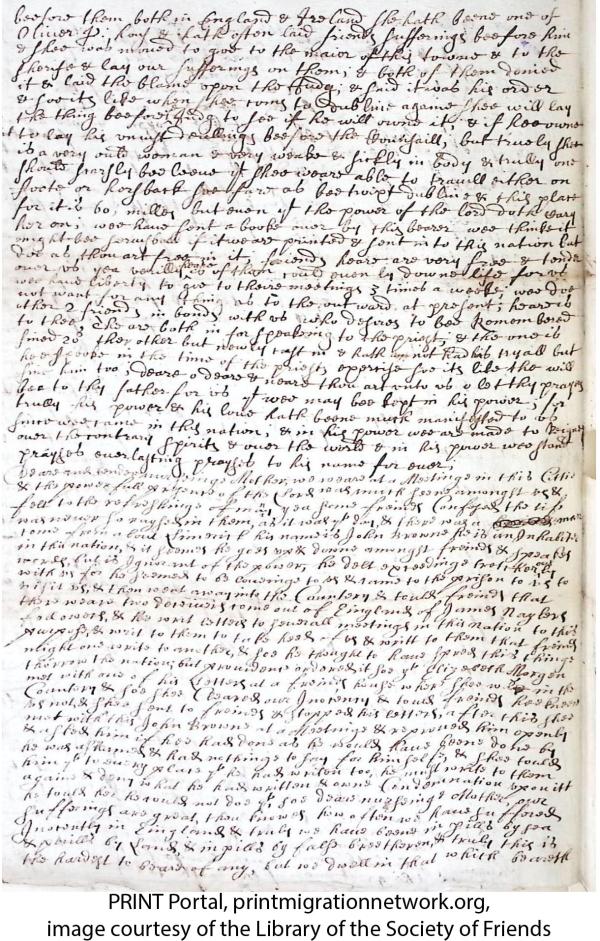 beefore them both in England & Ireland she hath beene one of
Oliver & hath often laid friends sufferings beefore him
& shee was moved to goe to the maior of this towne & to the
Sherife & lay our sufferings on them; & both of them denied
it & laid the blame upon the Judg; & said it was his order
& soe its like when shee coms to dublin againe shee will lay
the thing beefore Judg to see if he will owne it, & if hee owne
it to lay his unjust dealings beefore the Counsaill, but truely shee
is a very ould woman & very weake & sickly in body & trully one
should scarsly bee leeve yt shee weare able to travill either on
foote or horsback soe farr as beetwixt dublin & this place
for it is 60, milles but even yt the power of the lord doth cary
her on; wee have sent a booke over by this bearer wee thinke it
might bee servisable if it weare printed & sent in to this nation but
doe as thou art free in it, friends heare are very free & tender
over us yea of them could even ly downe life for us
wee have liberty to goe to theire meetings 3 times a weeke, wee doe
not want for any thing as to the outward at present; heare is
other 2 friends in bonds with us who desires to bee Remembered
to thee The are both in for speaking to the priest, & the one is
fined 20 the other but newly cast in & hath not had his tryall but
hee spoke in the time of the priests exersise soe its like the will
fine him too, deare o deare & neare thou art unto us o let thy prayers
bee to thy father for us yt wee may bee kept in his power; for
trully his power & his love hath beene much manifested to us
since wee came in this nation; & in his power wee are made to Reigne
over the contrary spirits & over the world & in his power wee stand
prayses everlasting prayses to his name for ever;
Deare and tender nursinge Mother, we weare at a Meetinge in this Cittie
& the powerfull presence of the Lord was much seene amongst us &
felt to the refreshinge of many yea some freinds Confesed the life
was never so raysed in them, as it was yt day, & there was a man
come from a Limerick his name is John Browne he is an Inhabiter
in this nation, & it seemes he goes up & downe amongst freinds & speakes
words, but is Ignorant of the power, he delt exceedinge
with us for he seemed to be loveinge to us & came to the prison to us to
visit us, & then went away into the Countery & tould freinds that
there weare two deceivers come out of Eingland of James Naylers
followers, & he writ Letters to generall meetings in this nation to this
purpose, & writ to them to take heed of us & writt to them that freinds
might one write to another, & soe he thought to have spred this thinge
thorrow the nation, but providence ordered it soe yt Elizebeth Morgen
met with one of his Letters at a freinds house wher shee was in the
Countery & soe shee Cleared our Inocency & tould freinds hee
us not & shee sent to freinds & stopped his letters, after this shee
met with this John Browne at a Meetinge & reproved him openly
& asked him if hee had done as he would have beene done by
he was ashamed & had nothinge to say for himselfe, & shee tould
him yt to every place yt he had writen too, he must write to them
againe & deny what he had written & owne Condemnation upon itt
he tould her he would not doe yt soe deare nurssinge Mother our
sufferings are great, thou knowes how often we have suffered
Inocently in Eingland & truly we have beene in perills by sea
& perills by Land & in perills by false breetheren & truly this is
the hardest to beare of any, but we dwell in that which beareth
PRINT Portal, printmigrationnetwork.org,
image courtesy of the Library of the Society of Friends